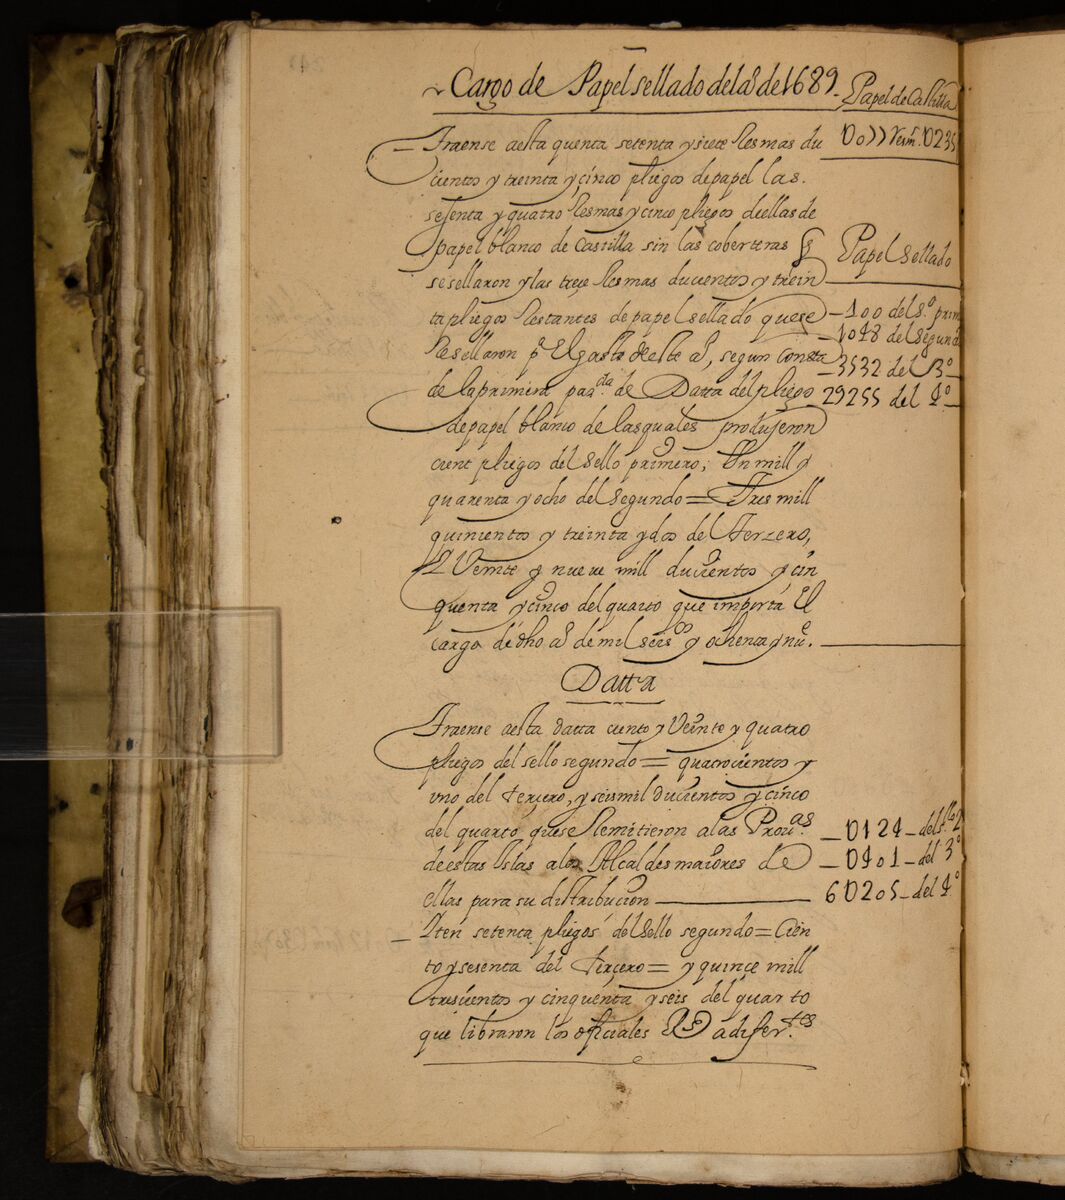 Cargo de Papel sellado del aº de 1689
Papel de Castilla
Traense a esta quenta setenta y siete Resmas du
U077 Resm. U235
cientos y treinta y cinco pliegos de papel las.
sesenta y quatro Resmas y cinco pliegos de ellas de
papel blanco de Castilla sin las coberteras q
Papel Sellado
se sellaron y las trese Resmas ducientos y trein
ta pliegos Restantes de papel sellado que se
100 del Sº prim
Resellaron pª El gasto de este aº, segun consta
1048 del segund
de la primera parta de Datta del pliego
3532 del 3º
29255 del 4º
de papel blanco de las quales produjeron
cient pliegos del sello primero, Un mill y
quarenta y ocho del segundo = Tres mill
quinientos y treinta y dos del Terzero,
Y Veinte y nueve mill ducientos y cin
quenta y cinco del quarto que importa El
cargo de dho aº de mil seisos y ochenta y nue.
Datta
Traense a esta datta ciento y Veinte y quatro
pliegos del sello segundo = quatrocientos y
uno del tercero, y seis mil ducientos y cinco
del quarto, que se Remitieron a las Prouas
U124 del sllo 2
de estas Islas a los Alcaldes maiores de
U401 del 3º
ellas para su distribucion
6U205 del 4º
Iten setenta pliegos del sello segundo = Cien
to y sesenta del tercero = y quince mill
trescientos y cinquenta y seis del quarto
que libraron los oficiales Rs a difertes